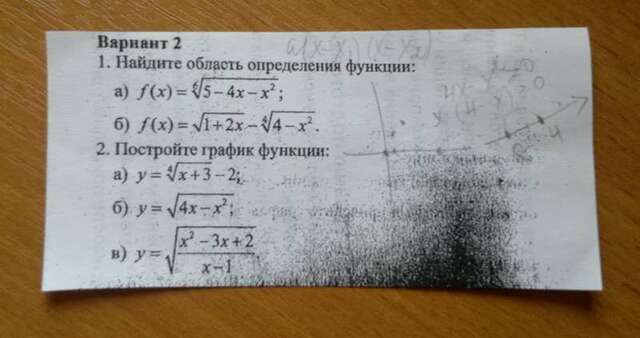 Вариант 2
a(x-x₁)(x-x₂)
1. Найдите область определения функции:
а) f(x) = ⁶√(5 − 4x − x²);
б) f(x) = √(1 + 2x) − ⁴√(4 − x²).
2. Постройте график функции:
а) y = ⁴√(x + 3) − 2;
б) y = √(4x − x²);
в) y = √((x² − 3x + 2)/(x − 1)).